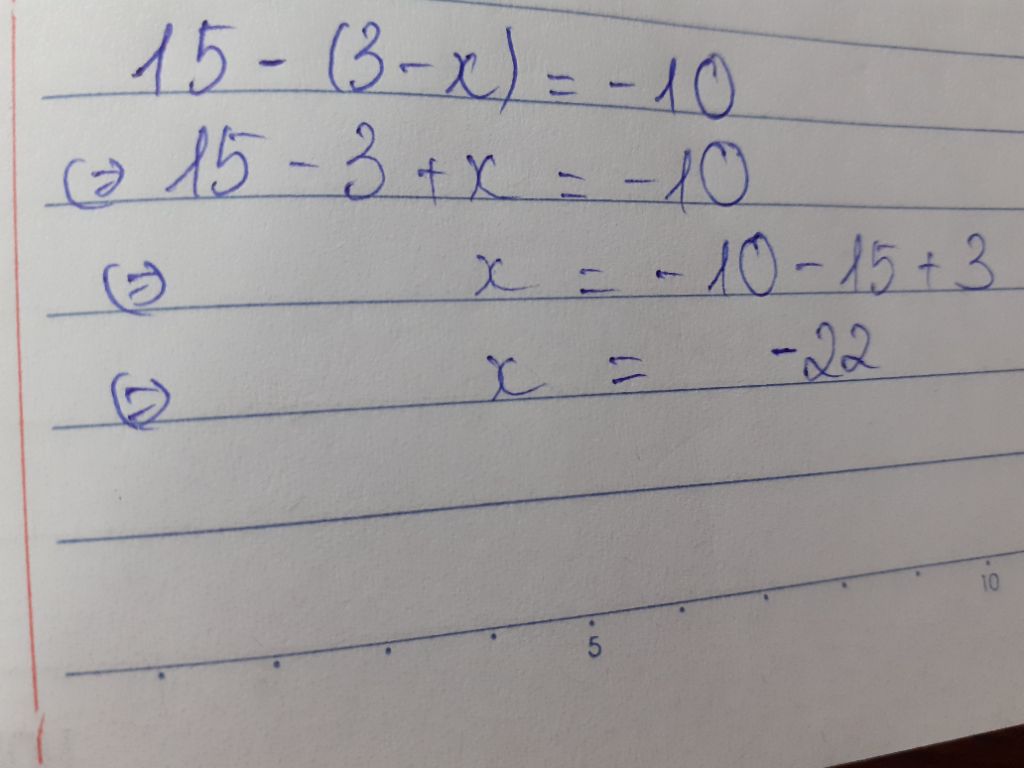 15 - (3 - x) = -10
(=) 15 - 3 + x = -10
(=) x = -10 - 15 + 3
(=) x = -22
5 10